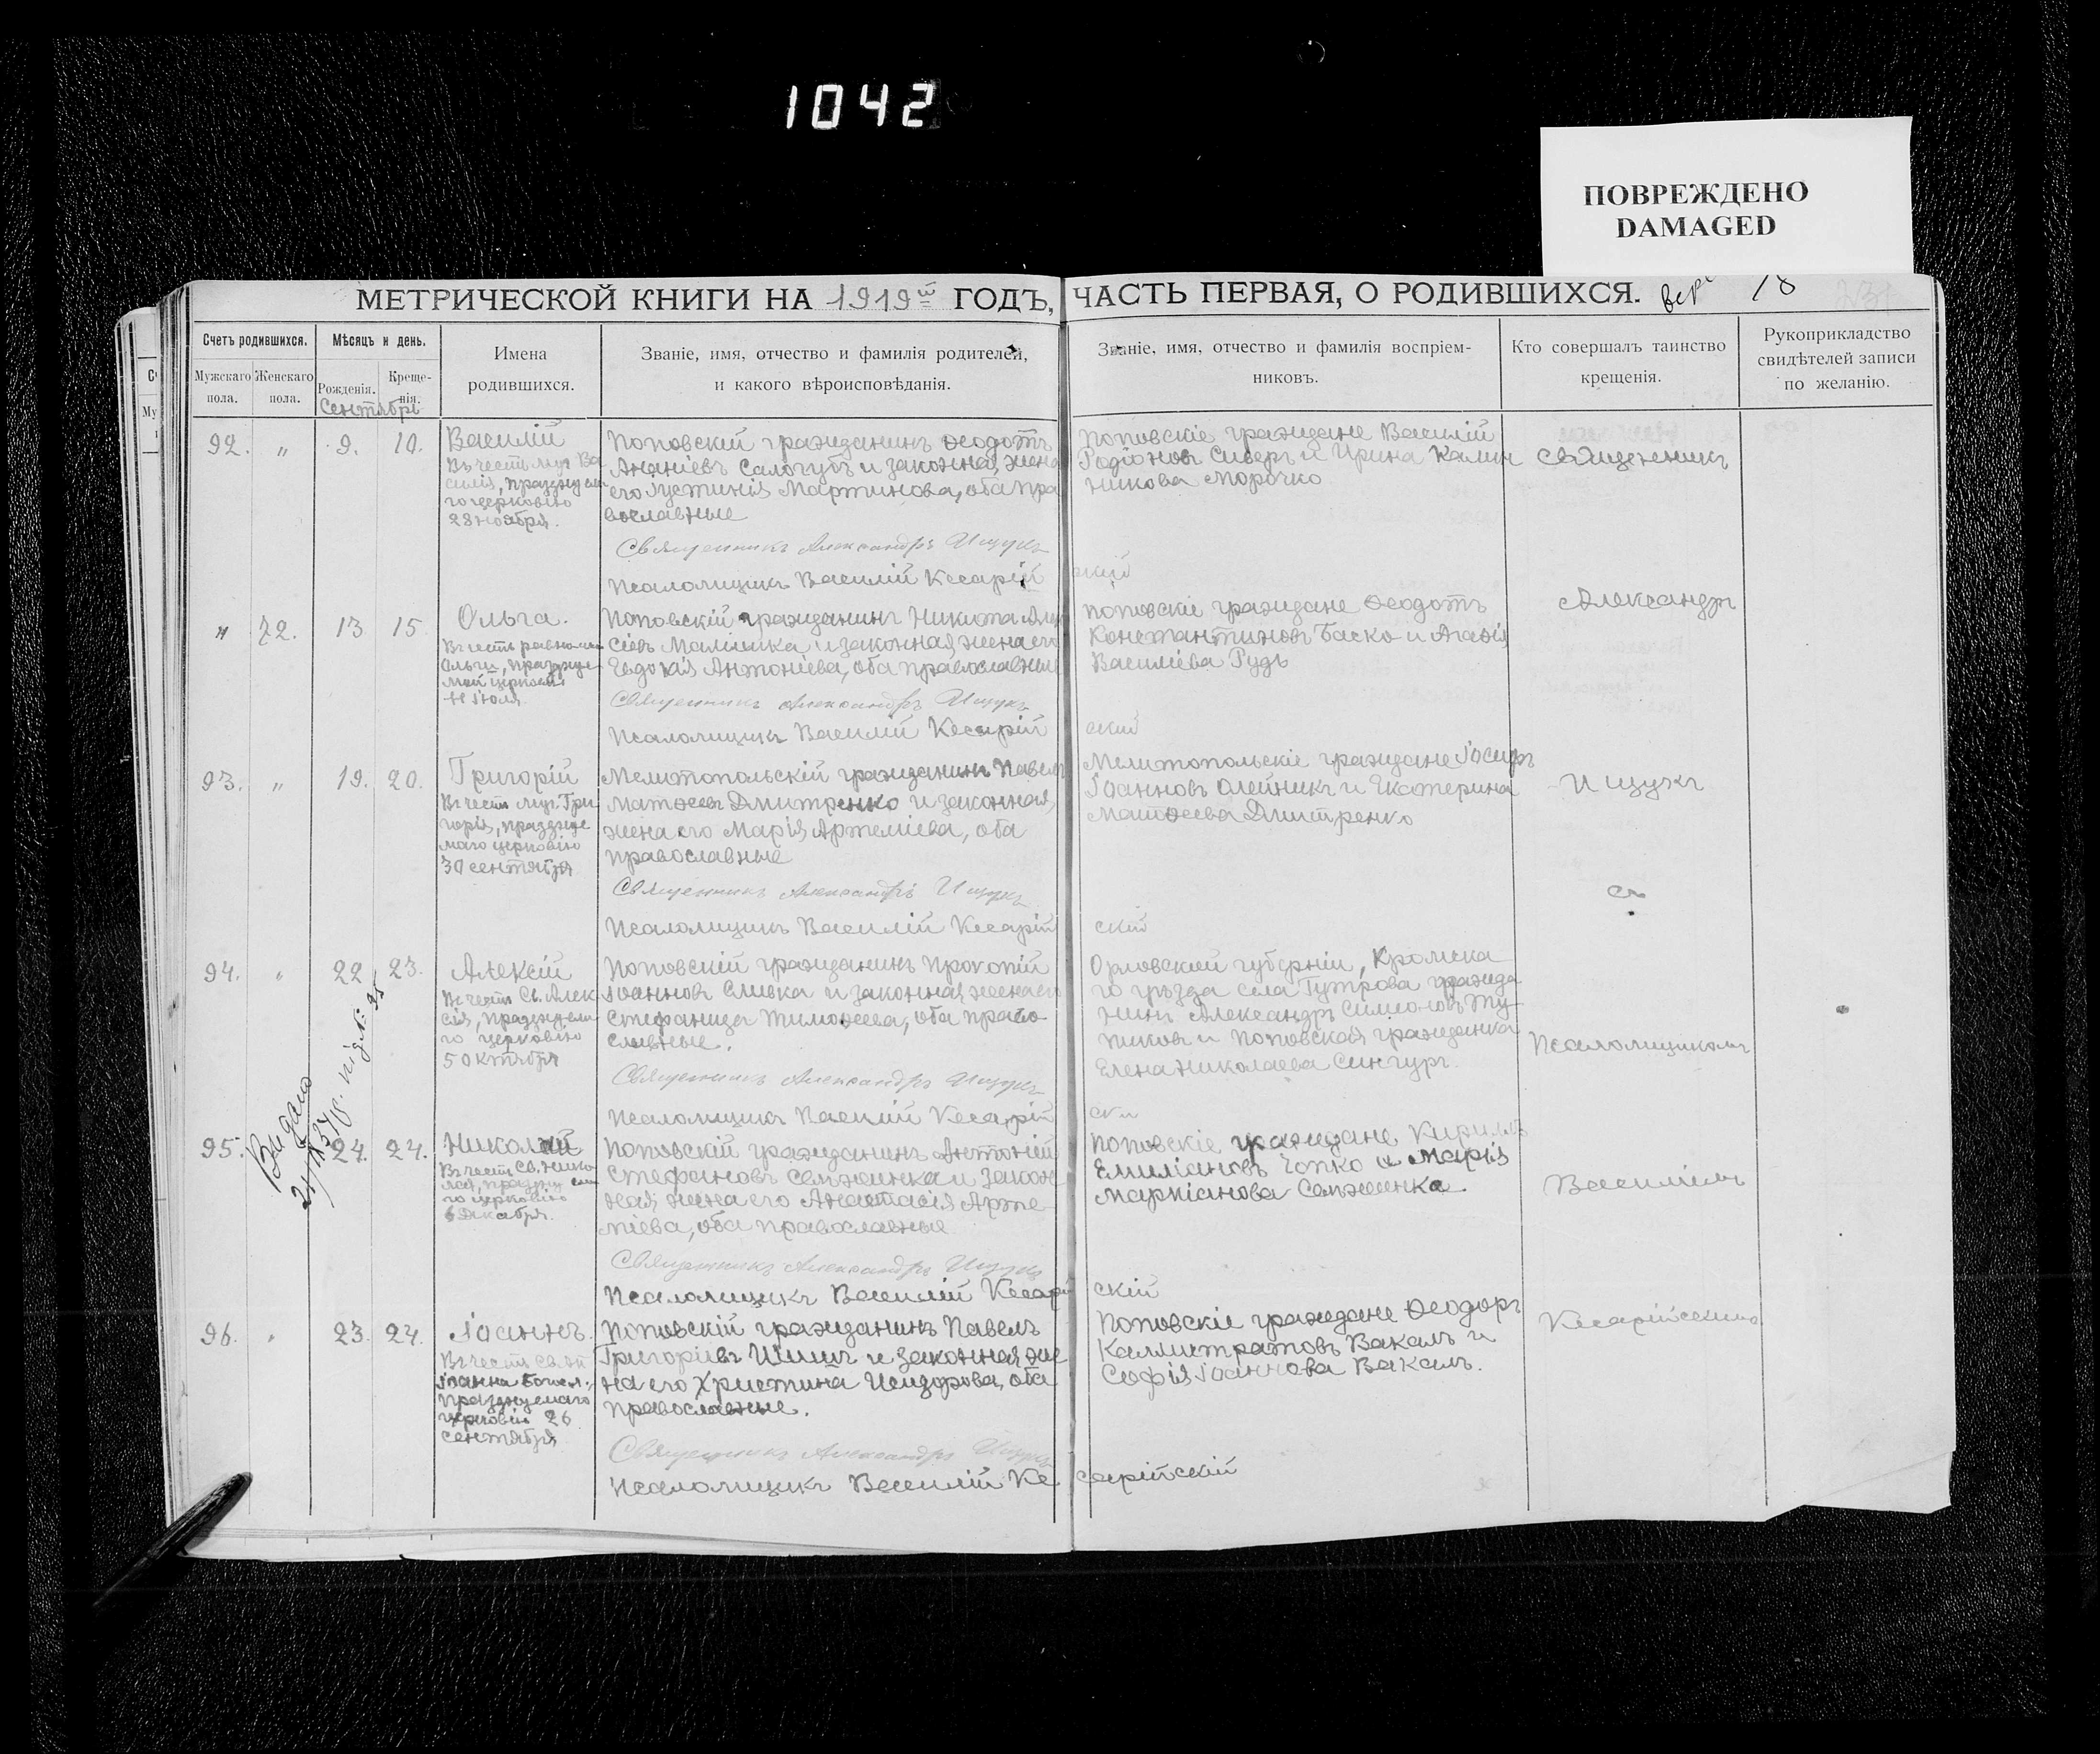 1042
ПОВРЕЖДЕНО
DAMAGED
МЕТРИЧЕСКОЙ КНИГИ НА 1919й ГОДЪ, ЧАСТЬ ПЕРВАЯ, О РОДИВШИХСЯ.
18
Счетъ родившихся.
Мужскаго пола.
Женскаго пола.
Мѣсяцъ и день.
Рожденія.
Креще-
нія.
Сентябрь
Имена
родившихся.
Званіе, имя, отчество и фамилія родителей,
и какого вѣроисповѣданія.
Званіе, имя, отчество и фамилія воспріем-
никовъ.
Кто совершалъ таинство
крещенія.
Рукоприкладство
свидѣтелей записи
по желанію.
92. " 9. 10.
Василій
Въ честь муч. Ва
силія, празднуема
го церковію
28 ноября.
Поповскій гражданинъ Ѳеодотъ
Ананіевъ Салогубъ и законная жена
его Іустинія Мартинова, оба пра
вославные
Священникъ Александръ Ищукъ
Псаломщикъ Василій Кесарій
скій
Поповскіе граждане Василій
Родіоновъ Сиверъ и Ирина Калин
никова Морочко
" 72. 13 15
Ольга.
Въ честь равноап.
Ольги, праздну
мой церковію
11 Іюля.
Поповскій гражданинъ Никита
сіевъ Малишка и законная жена его
Евдокія Антоніева, оба православные
Священникъ Александръ Ищукъ
Псаломщикъ Василій Кесарій
скій
Поповскіе граждане Ѳеодотъ
Константиновъ Баско и Агаѳія
Василіева Рудь
93. " 19. 20.
Григорій
Въ честь муч. Гри
горія, праздуе
маго церковію
30 сентября
Мелитопольскій гражданинъ Павелъ
Матѳеевъ Дмитренко и законная
жена его Марія Артеміева, оба
православные
Священникъ Александръ Ищукъ
Псаломщикъ Василій Кесарій
скій
Мелитопольскіе граждане Іосифъ
Іоанновъ Олейникъ и Екатерина
Матѳеева Дмитренко
94. " 22 23.
Алексій
Въ честь Св. Алек
сія, празднуема
го церковію
5 октября
Поповскій гражданинъ Прокопій
Іоанновъ Сливка и законная жена его
Стефанида Тимоѳеева, оба право
славные.
Священникъ Александръ Ищукъ
Псаломщикъ Василій Кесарій
ски
Орловской губерніи, Кромска
го уѣзда села Гутрова гражда
нинъ Александръ Симоновъ
и Поповская гражданка
Елена Николаева Сингуръ.
Видано
95. 24. 24.
Николай
Въ честь Св. Нико
лая, празднуема
го церковію
6 декабря.
Поповскій гражданинъ Антоній
Стефановъ Семженка и закон
ная жена его Анастасія Арте
міева, оба православные
Священникъ Александръ Ищукъ
Псаломщикъ Василій Кесарій
скій
Поповскіе граждане Кириллъ
Емиліановъ Чопко и Марія
Маркіанова Семженка.
96. " 23. 24.
Іоаннъ.
Въ честь св. ап.
Іоанна Богосл.,
празднуемаго
церковію 26
сентября
Поповскій гражданинъ Павелъ
Григоріевъ Шишъ и законная же
на его Христина Исидорова, оба
православные.
Священникъ Александръ Ищукъ
Псаломщикъ Василій Ке
сарійскій
Поповскіе граждане Ѳеодоръ
Каллистратовъ Вакалъ и
Софія Іоаннова Вакалъ.
Священникъ
Александръ
Ищукъ
съ
Псаломщикомъ
Василіемъ
Кесарійскимъ